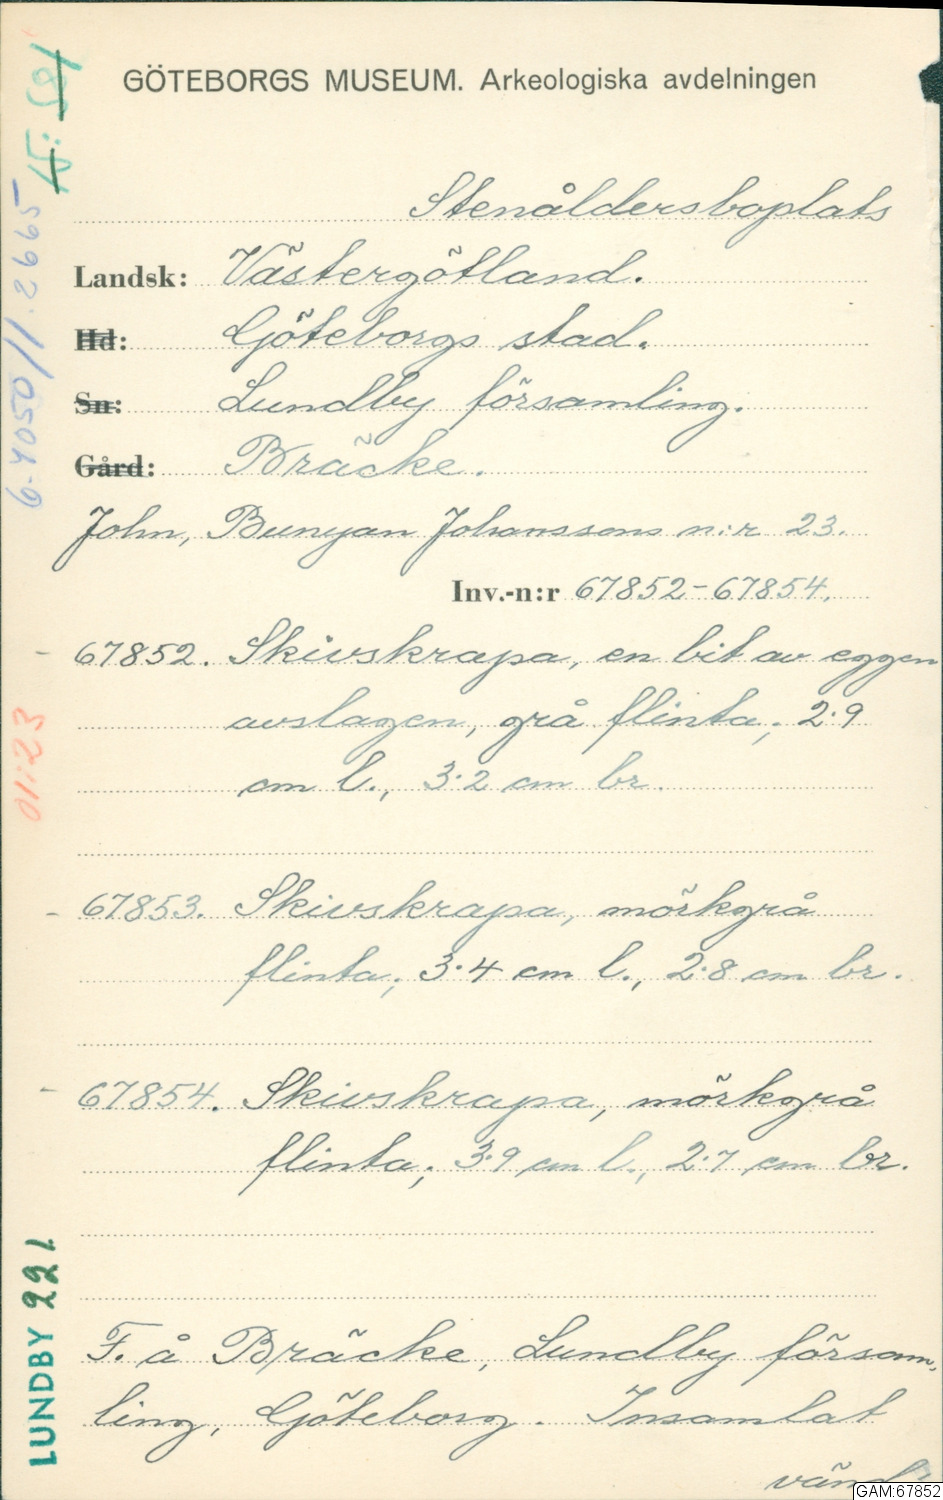 GÖTEBORGS MUSEUM. Arkeologiska avdelningen
Stenåldersboplats
Landsk: Västergötland.
Hd: Göteborgs stad.
Sn: Lundby församling.
Gård: Bräcke.
John, Bunyan Johanssons n:r 23.
Inv.-n:r 67852-67854.
67852. Skivskrapa, en bit av eggen
avslagen, grå flinta; 2.9
cm l., 3.2 cm br.
67853. Skivskrapa, mörkgrå
flinta; 3.4 cm l., 2.8 cm br.
67854. Skivskrapa, mörkgrå
flinta; 3.9 cm l., 2.7 cm br.
F. å Bräcke, Lundby försam-
ling, Göteborg. Insamlat
vänd
LUNDBY 221
01:23
GAM:67852